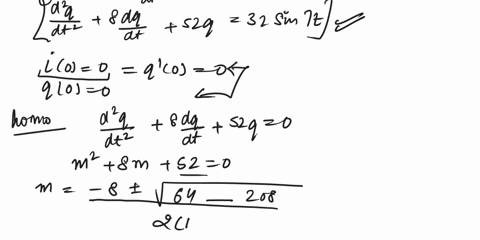 [d²q/dt² + 8dq/dt + 52q = 32 sin 7t]
i(0) = 0 = q'(0) = 0
q(0) = 0
homo d²q/dt² + 8dq/dt + 52q = 0
m² + 8m + 52 = 0
m = -8 ± √64 — 208
2(1